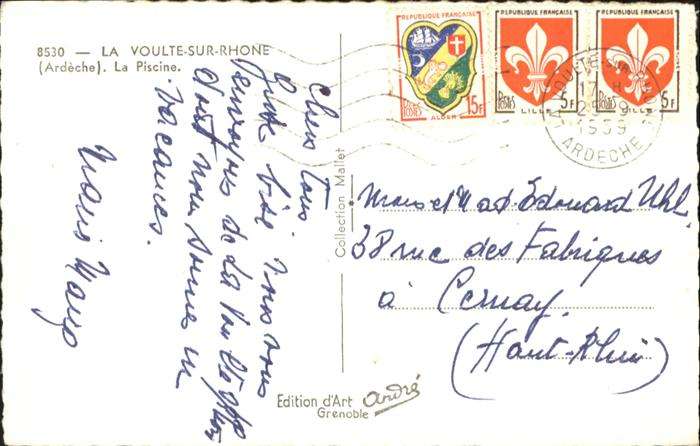 8530 — LA VOULTE-SUR-RHONE
(Ardèche). La Piscine.
Chers Tous
Juste
nous vous
envoyons de La Voulte
dont nous sommes en
vacances.
Collection Mallet
Edition d'Art André
Grenoble
REPUBLIQUE FRANÇAISE
POSTES 15F
ALGER
REPUBLIQUE FRANÇAISE
POSTES 5F
LILLE
REPUBLIQUE FRANÇAISE
POSTES 5F
LILLE
LA VOULTE-SUR-RHONE
17 H
1959
ARDECHE
Mons et Mad Edouard Uhl.
38 rue des Fabriques
à Cernay.
(Haut-Rhin)